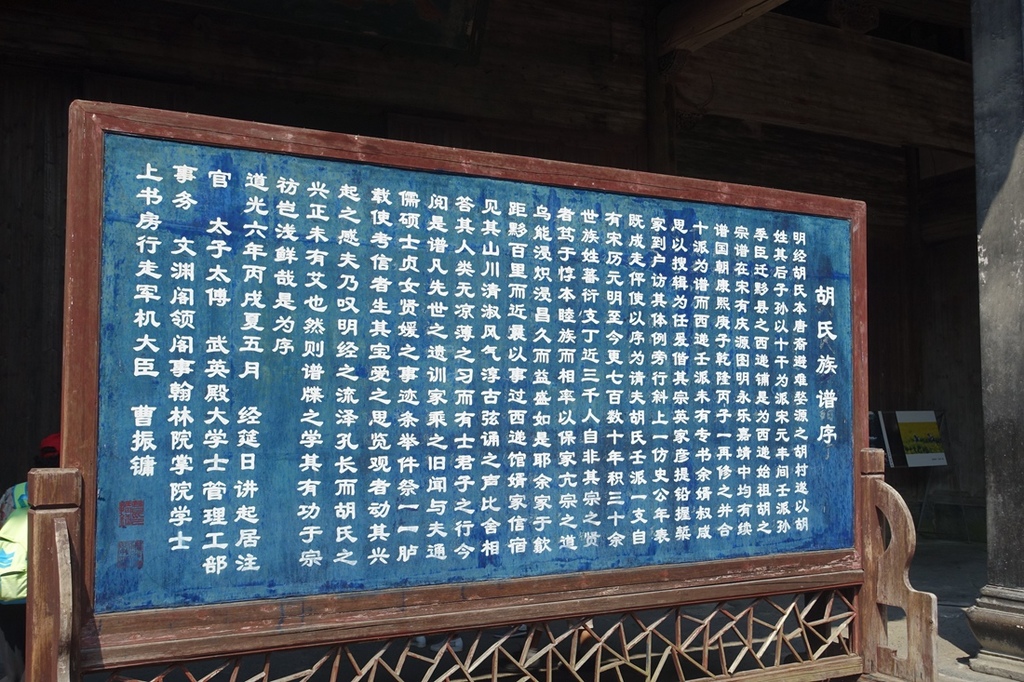 胡氏族谱序
明经胡氏本唐裔避难婺源之胡村遂以胡
姓其后子孙以十干为派宋元丰间壬派孙
季臣迁黟县之西递铺是为西递始祖胡之
宗谱在宋有庆源图明永乐嘉靖中均有续
谱国朝康熙庚子乾隆丙子一再修之并合
十派为谱而西递壬派未有专书余婿叔咸
思以搜辑为任爰偕其宗英家彦提铅握椠
家到户访其体例旁行斜上一仿史公年表
既成走伻使以序为请夫胡氏壬派一支自
有宋历元明至今更七百数十年积三十余
世族姓蕃衍支丁近三千人自非其宗之贤
者笃于惇本睦族而相率以保家亢宗之道
乌能浸炽浸昌久而益盛如是耶余家于歙
距黟百里而近曩以事过西递馆婿家信宿
见其山川清淑风气淳古弦诵之声比舍相
答其人类无凉薄之习而有士君子之行今
阅是谱凡先世之遗训家乘之旧闻与夫通
儒硕士贞女贤媛之事迹条举件祭一一胪
载使考信者生其宝爱之思览观者动其兴
起之感夫乃叹明经之流泽孔长而胡氏之
兴正未有艾也然则谱牒之学其有功于宗
祊岂浅鲜哉是为序
道光六年丙戌夏五月 经筵日讲起居注
官 太子太傅 武英殿大学士管理工部
事务 文渊阁领阁事翰林院掌院学士
上书房行走军机大臣 曹振镛